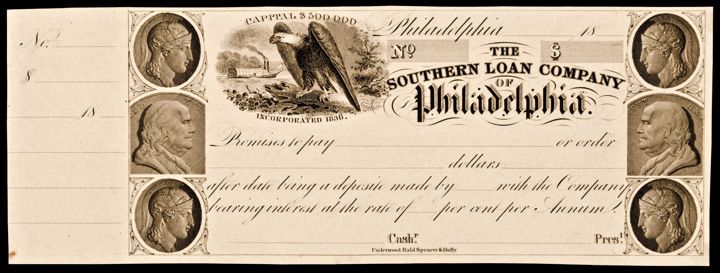 No.
$
18
CAPITAL $500.000
INCORPORATED 1836.
Philadelphia 18
No. THE $
SOUTHERN LOAN COMPANY
OF
Philadelphia.
Promises to pay or order
dollars
after date being a deposite made by with the Company
bearing interest at the rate of per cent per Annum.
Cashr. Prest.
Underwood Bald Spencer & Hufty